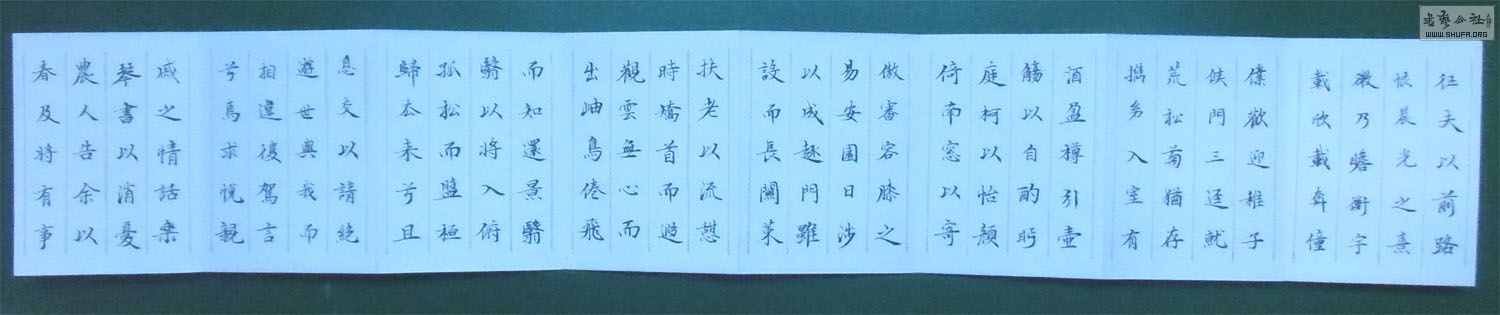 征夫以前路
恨晨光之熹
微乃瞻衡宇
載欣載奔僮
僕歡迎稚子
候門三逕就
荒松菊猶存
攜幼入室有
酒盈樽引壺
觴以自酌眄
庭柯以怡顏
倚南窓以寄
傲審容膝之
易安園日涉
以成趣門雖
設而長關策
扶老以流憩
時矯首而遐
觀雲無心而
出岫鳥倦飛
而知還景翳
翳以將入俯
孤松而盤桓
歸去来兮且
息交以請絶
遊世與我而
相違復駕言
兮焉求悅親
戚之情話樂
琴書以消憂
農人告余以
春及將有事
書藝公社
WWW.SHUFA.ORG